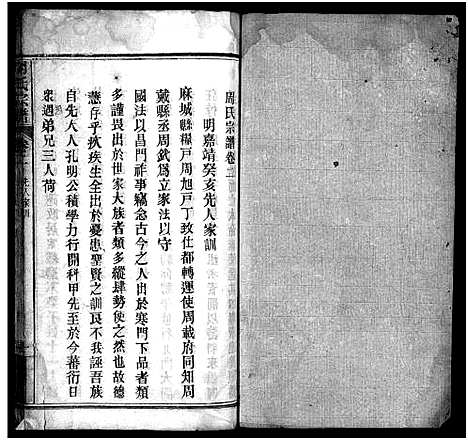 周氏宗譜卷
明嘉靖癸亥先人家訓
麻城縣糧戶周旭戶丁致仕都轉運使周載府同知周
戴縣丞周欽爲立家法以守
國法以昌門祚事竊念古今之人出於寒門下品者類
多謹畏出於世家大族者類多縱肆勢使之然也故德
慧存乎疢疾生全出於憂患聖賢之訓良不我誣吾族
自先大人孔明公積學力行開科甲先至於今蕃衍日
衆遇弟兄三人荷